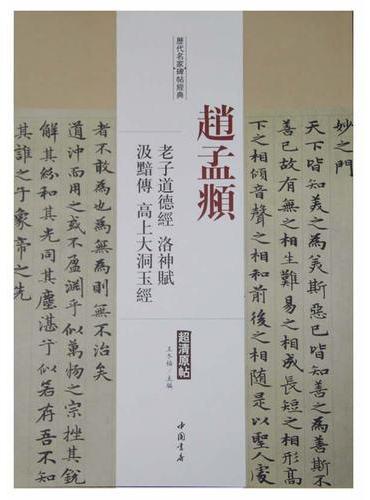 歷代名家碑帖經典
趙孟頫
老子道德經 洛神賦
汲黯傳 高上大洞玉經
超清原帖
王冬梅 主編
中國書店
妙之門
天下皆知美之為美斯惡已皆知善之為善斯不
善已故有無之相生難易之相成長短之相形高
下之相傾音聲之相和前後之相隨是以聖人處
者不敢為也為無為則無不治矣
道沖而用之或不盈淵乎似萬物之宗挫其銳
解其紛和其光同其塵湛乎似若存吾不知
其誰之子象帝之先